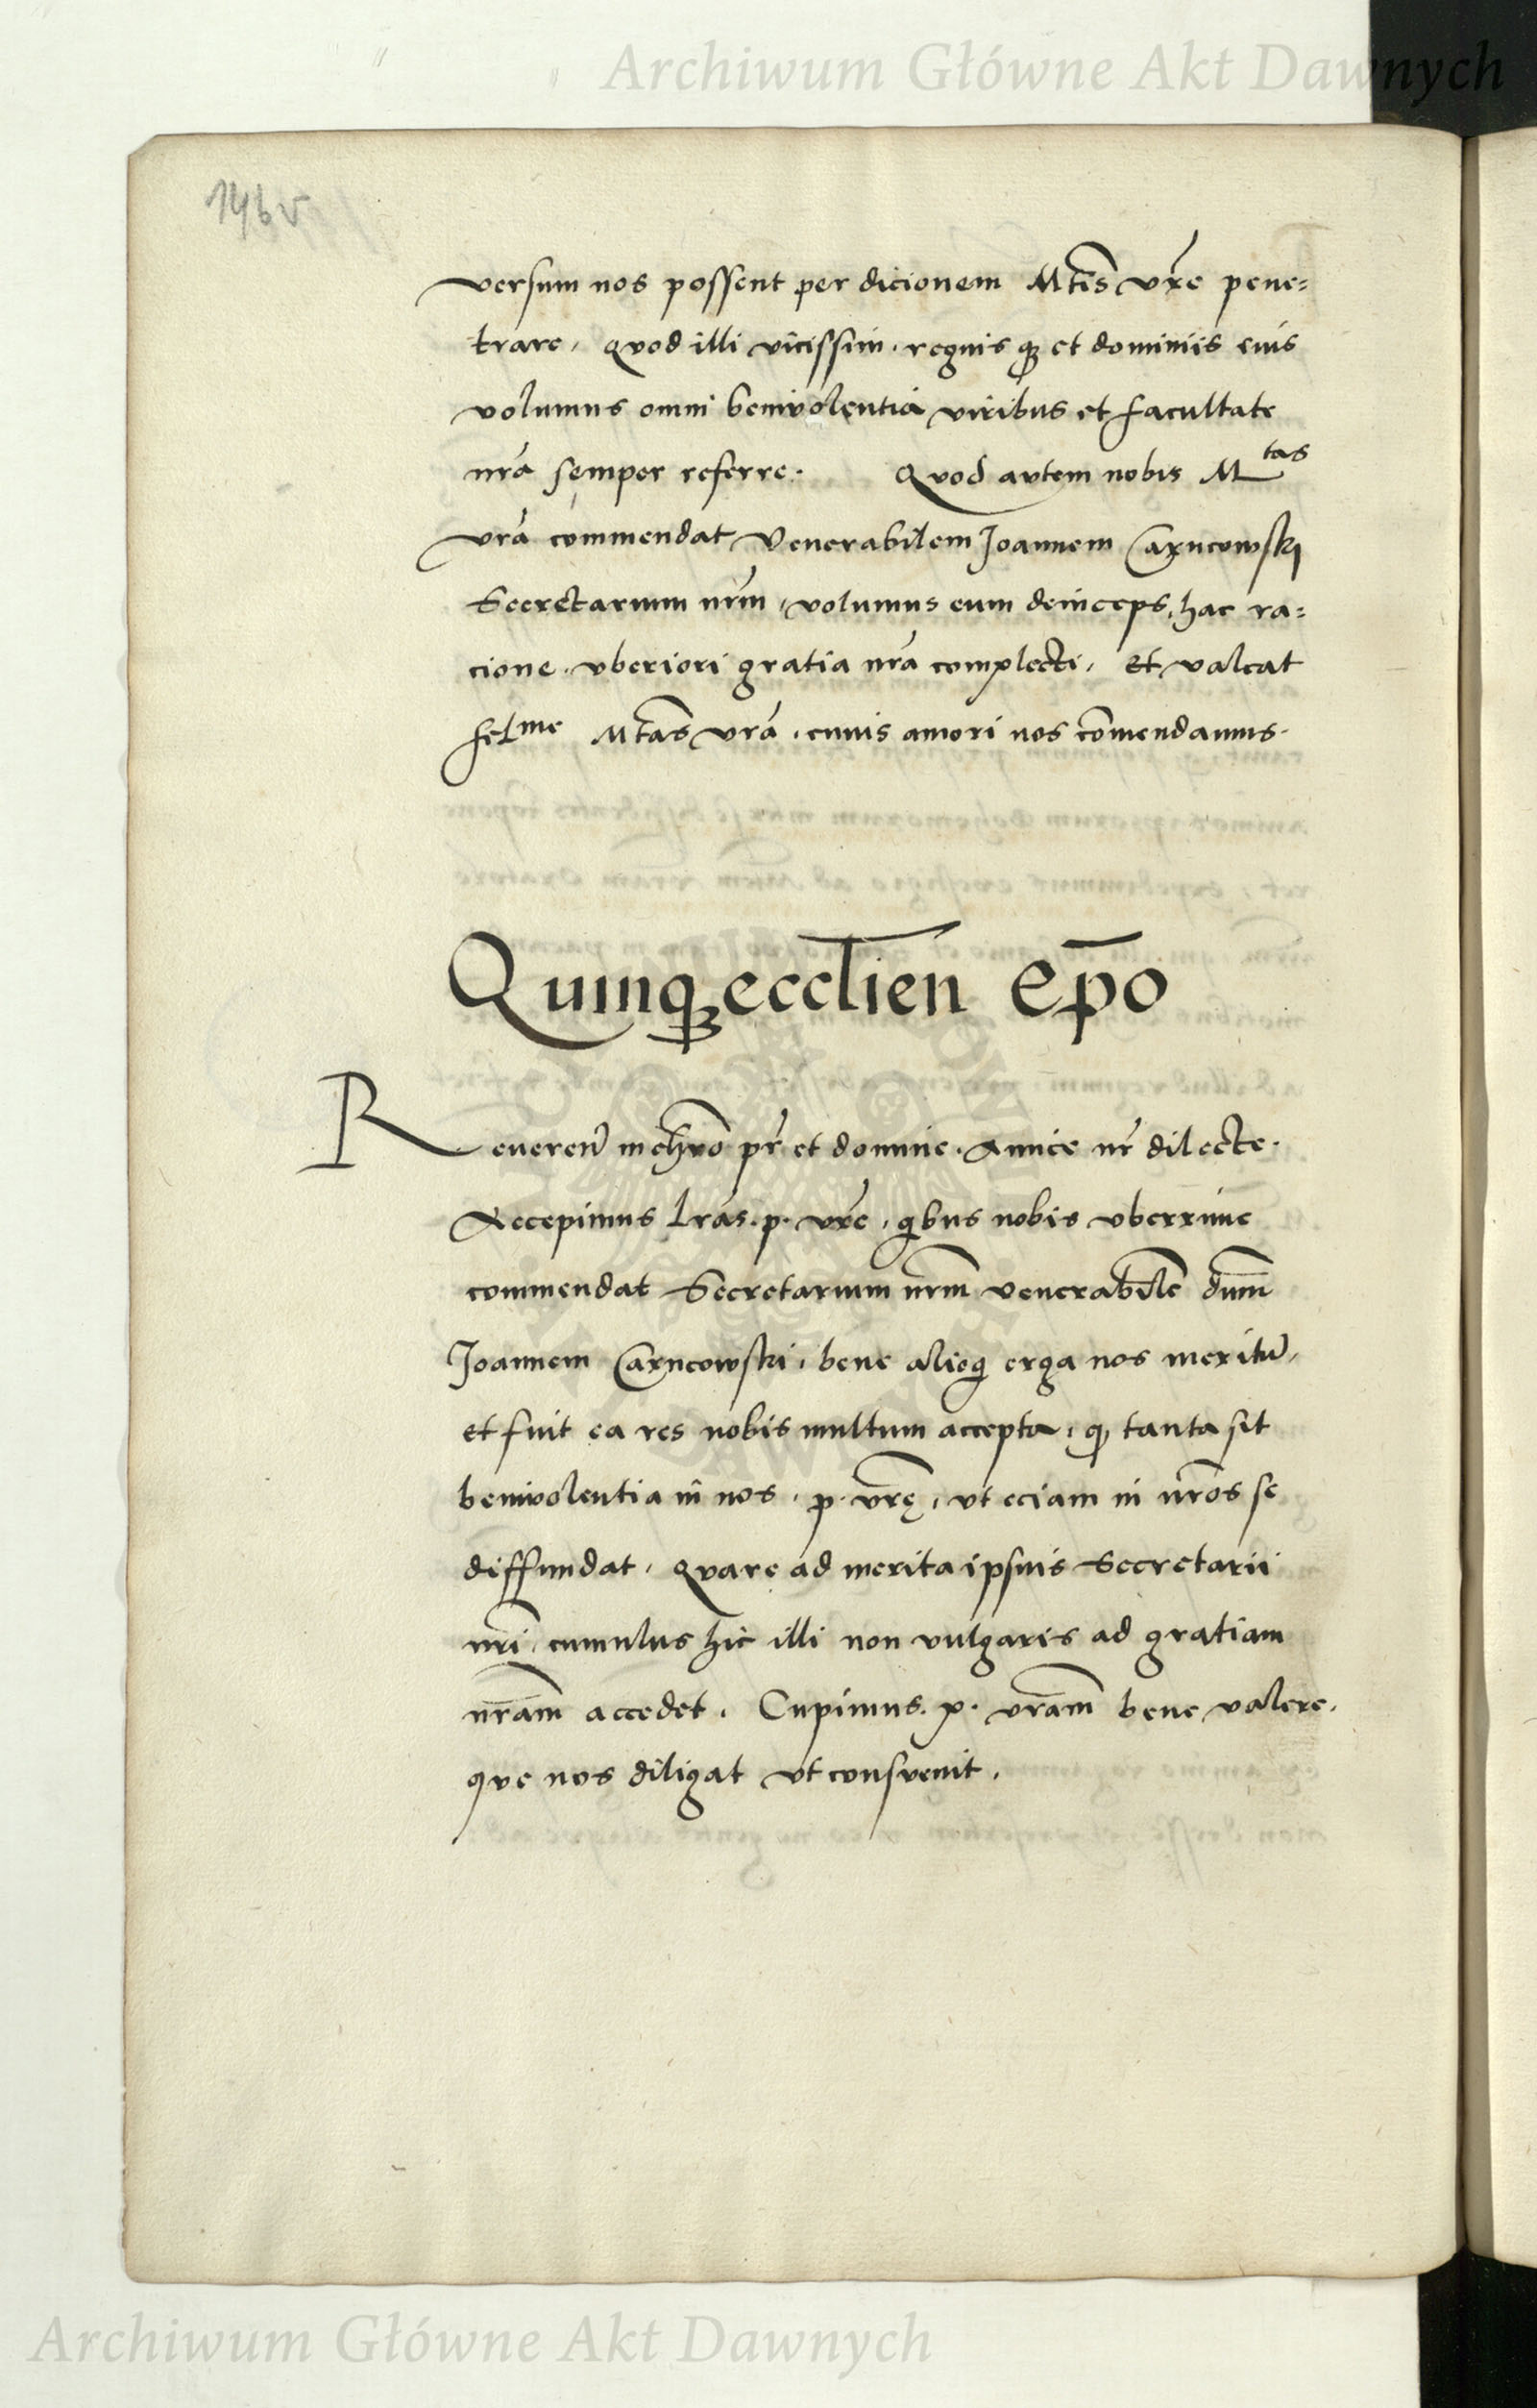 Archiwum Główne Akt Dawnych
146v
versum nos possent per dicionem Mtis vr̃e pene=
trare, Quod illi vicissim, regnis qȝ et dominiis eius
volumus omni benivolentia viribus et facultate
nr̃a semper referre. Quod autem nobis Mtas
vr̃a commendat Venerabilem Joannem Carncowskj
Secretarium nr̃m, volumus eum deinceps, hac ra=
cione, vberiori gratia nr̃a complecti, Et valeat
felme Mtas vr̃a, cuius amori nos cōmendamus.
Quinqȝ eccl̄ien ep̄o
Reveren̄ in chr̄o pr̃ et domine, Amice nr̃ dilecte.
Accepimus Lr̃as. p. vr̃e, qibus nobis vberrime
commendat Secretarium nr̄m venerabilē dn̄m
Joannem Carncowski, bene alioqi erga nos meritū,
et fuit ea res nobis multum accepta, qꝫ tanta sit
benivolentia in nos, p. vr̄ę, vt eciam in nr̄os se
diffundat, Quare ad merita ipsius Secretarii
nr̄i, cumulus hic illi non vulgaris ad gratiam
nr̄am accedet. Cupimus. p. vr̄am bene valere,
que nos diligat vt consuevit.
Archiwum Główne Akt Dawnych